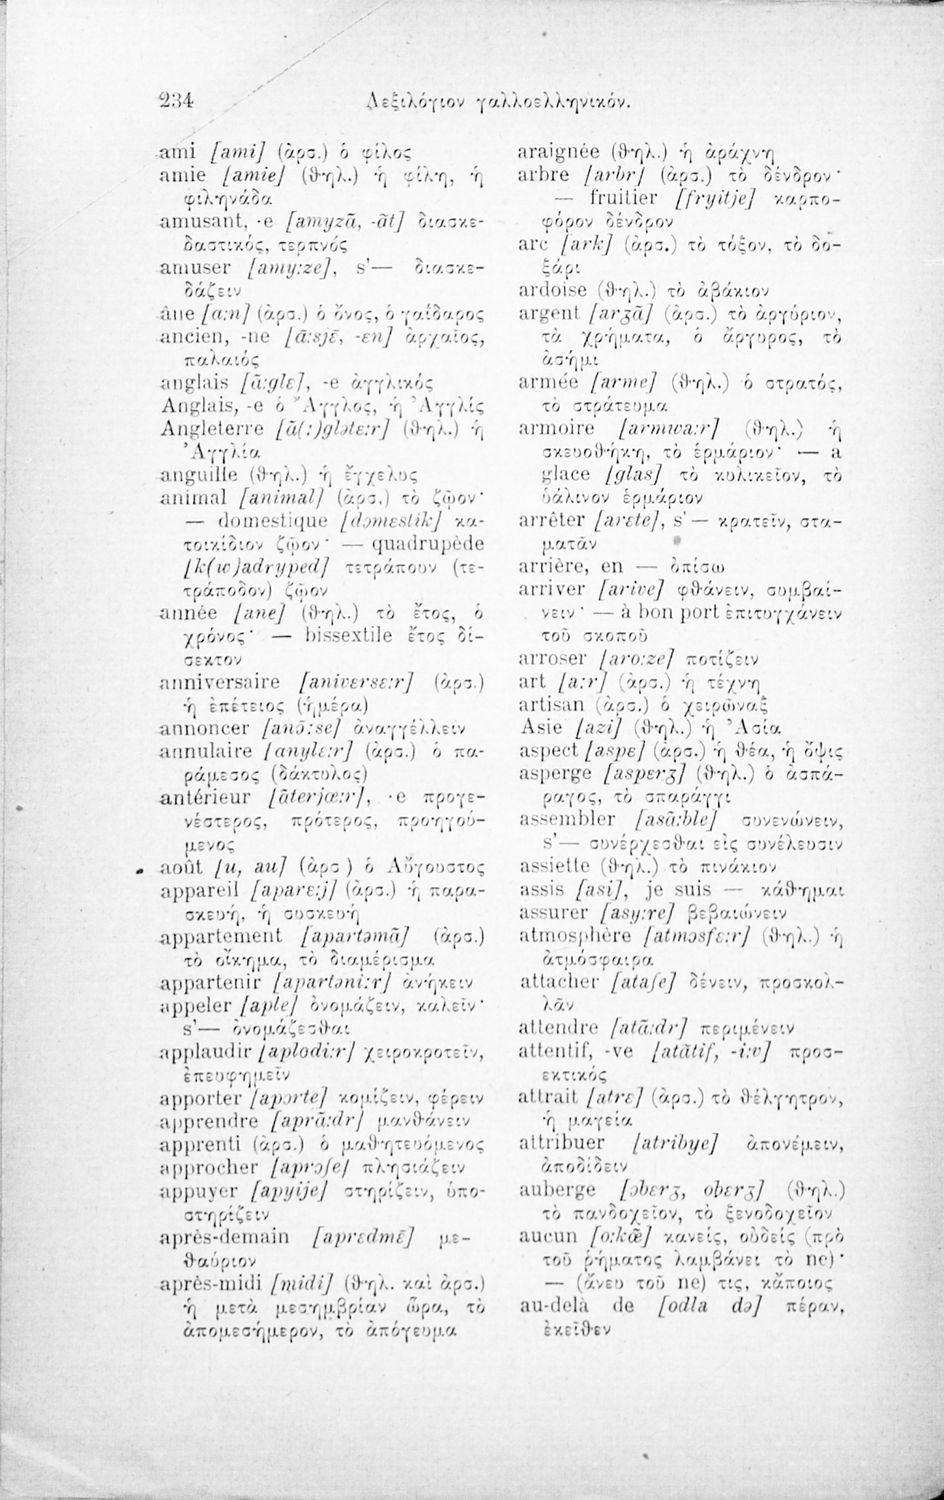 234
Λεξιλόγιον γαλλοελληνικόν.
ami [ami] (ἀρσ.) ὁ φίλος
amie [amie] (θηλ.) ἡ φίλη, ἡ
φιληνάδα
amusant, -e [amyzã, -ãt] διασκε-
δαστικός, τερπνός
amuser [amy:ze], s'— διασκε-
δάζειν
âne [a:n] (ἀρσ.) ὁ ὄνος, ὁ γαίδαρος
ancien, -ne [ã:sjẽ, -en] ἀρχαῖος,
παλαιός
anglais [ã:glɛ], -e ἀγγλικός
Anglais, -e ὁ Ἄγγλος, ἡ Ἀγγλίς
Angleterre [ã(:)glətɛ:r] (θηλ.) ἡ
Ἀγγλία
anguille (θηλ.) ἡ ἔγχελυς
animal [animal] (ἀρσ.) τὸ ζῷον·
— domestique [dɔmɛstik] κα-
τοικίδιον ζῷον· — quadrupède
[k(w)adryped] τετράπουν (τε-
τράποδον) ζῷον
année [ane] (θηλ.) τὸ ἔτος, ὁ
χρόνος· — bissextile ἔτος δί-
σεκτον
anniversaire [anivɛrsɛ:r] (ἀρσ.)
ἡ ἐπέτειος (ἡμέρα)
annoncer [anɔ̃:se] ἀναγγέλλειν
annulaire [anylɛ:r] (ἀρσ.) ὁ πα-
ράμεσος (δάκτυλος)
antérieur [ãterjœ:r], -e προγε-
νέστερος, πρότερος, προηγού-
μενος
août [u, au] (ἀρσ) ὁ Αὔγουστος
appareil [aparɛ:j] (ἀρσ.) ἡ παρα-
σκευή, ἡ συσκευή
appartement [apartəmã] (ἀρσ.)
τὸ οἴκημα, τὸ διαμέρισμα
appartenir [apartəni:r] ἀνήκειν
appeler [aple] ὀνομάζειν, καλεῖν·
s'— ὀνομάζεσθαι
applaudir [aplodi:r] χειροκροτεῖν,
ἐπευφημεῖν
apporter [apɔrte] κομίζειν, φέρειν
apprendre [aprã:dr] μανθάνειν
apprenti (ἀρσ.) ὁ μαθητευόμενος
approcher [aprɔʃe] πλησιάζειν
appuyer [apyije] στηρίζειν, ὑπο-
στηρίζειν
après-demain [aprɛdmẽ] με-
θαύριον
après-midi [midi] (θηλ. καὶ ἀρσ.)
ἡ μετὰ μεσημβρίαν ὥρα, τὸ
ἀπομεσήμερον, τὸ ἀπόγευμα
araignée (θηλ.) ἡ ἀράχνη
arbre [arbr] (ἀρσ.) τὸ δένδρον·
— fruitier [fryitje] καρπο-
φόρον δένδρον
arc [ark] (ἀρσ.) τὸ τόξον, τὸ δο-
ξάρι
ardoise (θηλ.) τὸ ἀβάκιον
argent [arʒã] (ἀρσ.) τὸ ἀργύριον,
τὰ χρήματα, ὁ ἄργυρος, τὸ
ἀσήμι
armée [arme] (θηλ.) ὁ στρατός,
τὸ στράτευμα
armoire [armwa:r] (θηλ.) ἡ
σκευοθήκη, τὸ ἑρμάριον· — a
glace [glas] τὸ κυλικεῖον, τὸ
ὑάλινον ἑρμάριον
arrêter [arɛte], s'— κρατεῖν, στα-
ματᾶν
arrière, en — ὀπίσω
arriver [arive] φθάνειν, συμβαί-
νειν· — à bon port ἐπιτυγχάνειν
τοῦ σκοποῦ
arroser [aro:ze] ποτίζειν
art [a:r] (ἀρσ.) ἡ τέχνη
artisan (ἀρσ.) ὁ χειρῶναξ
Asie [azi] (θηλ.) ἡ Ἀσία
aspect [aspɛ] (ἀρσ.) ἡ θέα, ἡ ὄψις
asperge [aspɛrʒ] (θηλ.) ὁ ἀσπά-
ραγος, τὸ σπαράγγι
assembler [asã:ble] συνενώνειν,
s'— συνέρχεσθαι εἰς συνέλευσιν
assiette (θηλ.) τὸ πινάκιον
assis [asi], je suis — κάθημαι
assurer [asy:re] βεβαιώνειν
atmosphère [atmɔsfɛ:r] (θηλ.) ἡ
ἀτμόσφαιρα
attacher [ataʃe] δένειν, προσκολ-
λᾶν
attendre [atã:dr] περιμένειν
attentif, -ve [atãtif, -i:v] προσ-
εκτικός
attrait [atrɛ] (ἀρσ.) τὸ θέλγητρον,
ἡ μαγεία
attribuer [atribye] ἀπονέμειν,
ἀποδίδειν
auberge [ɔbɛrʒ, obɛrʒ] (θηλ.)
τὸ πανδοχεῖον, τὸ ξενοδοχεῖον
aucun [o:kœ̃] κανείς, οὐδείς (πρὸ
τοῦ ῥήματος λαμβάνει τὸ ne)·
— (ἄνευ τοῦ ne) τις, κἄποιος
au-delà de [odla də] πέραν,
ἐκεῖθεν